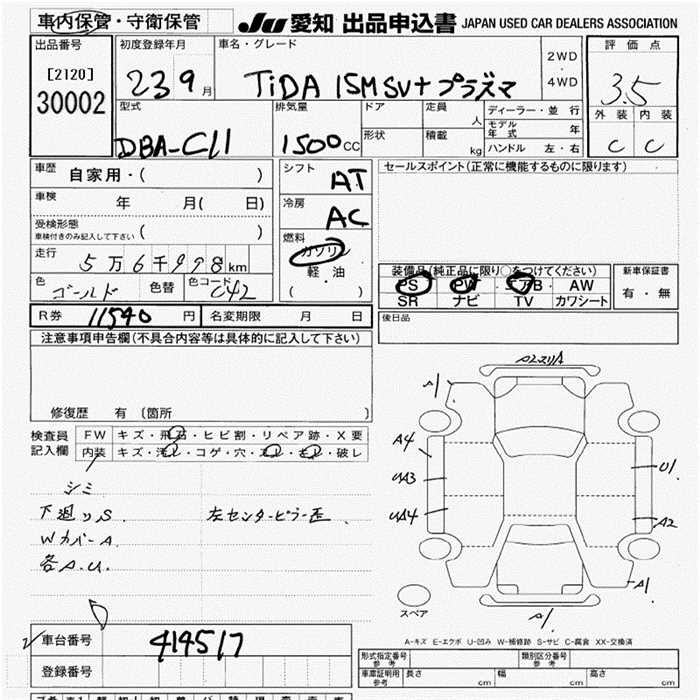 車内保管・守衛保管
JU 愛知 出品申込書 JAPAN USED CAR DEALERS ASSOCIATION
出品番号
[2120]
30002
初度登録年月
23 9月
車名・グレード
TiDA 15MSV+プラズマ
2WD
4WD
評価点
3.5
外装 内装
C C
型式
DBA-C11
排気量
1500cc
ドア
形状
定員 人
積載 kg
ディーラー・並行
モデル年式 年
ハンドル 左・右
車歴 自家用・( )
車検 年 月( 日)
受検形態
車検付きのみ記入して下さい ( )
走行 5万6千998km
色 ゴールド 色替 色コード C42
シフト AT
冷房 AC
燃料
ガソリン
軽・油
( )
セールスポイント(正常に機能するものに限ります)
装備品(純正品に限り○をつけてください)
PS PW エアB AW
SR ナビ TV カワシート
新車保証書
有・無
R券 11540円 名変期限 月 日
後日品
注意事項申告欄(不具合内容等は具体的に記入して下さい)
修復歴 有 〔箇所 〕
検査員記入欄
FW キズ・飛石・ヒビ割・リペア跡・X要
内装 キズ・汚レ・コゲ・穴・スレ・キレ・破レ
シミ
下廻りS
左センターピラー歪
WカバーA
各A.U.
A2スリA
A1
A4
UA3
UA4
U1
A2
A1
A1
スペア
A-キズ E-エクボ U-凹み W-補修跡 S-サビ C-腐食 XX-交換済
車台番号 414517
登録番号
形式指定番号 参考
類別区分番号 参考
車庫証明用 参考 長さ cm 幅 cm 高さ cm